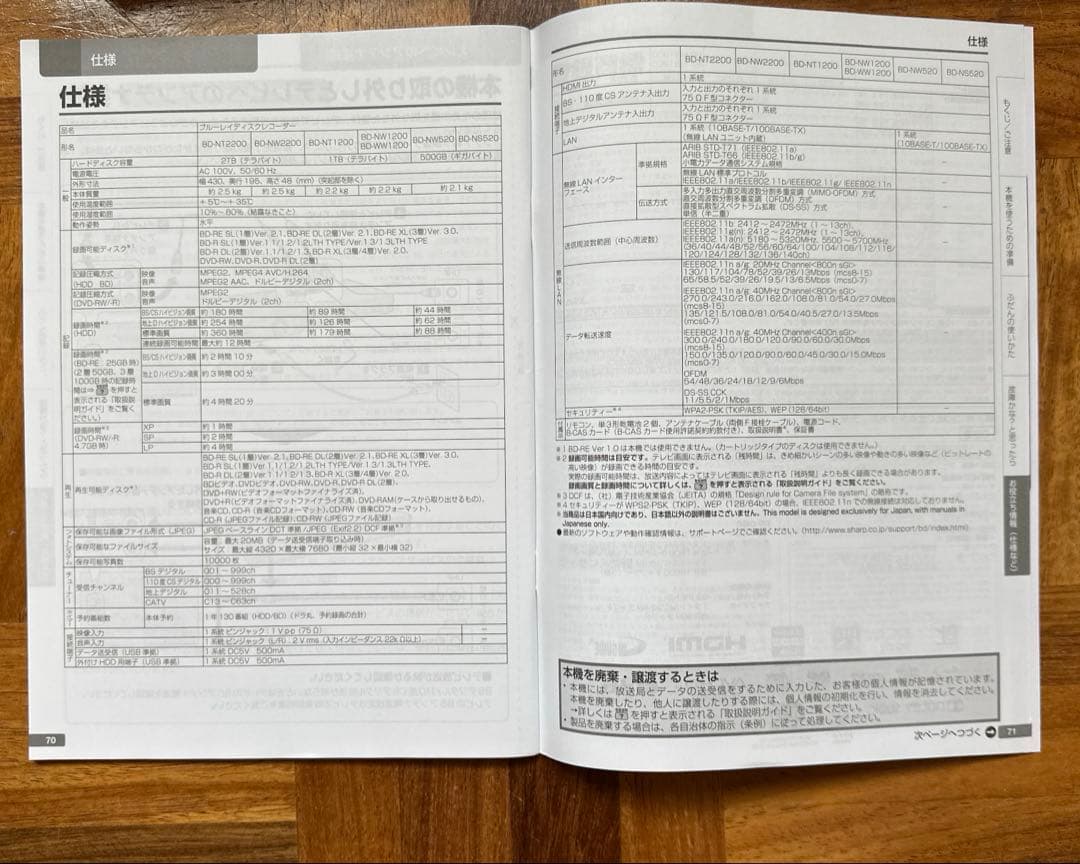 仕様
仕様
品名 ブルーレイディスクレコーダー
形名 BD-NT2200 BD-NW2200 BD-NT1200 BD-NW1200 BD-WW1200 BD-NW520 BD-NS520
一般
ハードディスク容量 2TB(テラバイト) 1TB(テラバイト) 500GB(ギガバイト)
電源電圧 AC 100V、50/60 Hz
外形寸法 幅 430、奥行 195、高さ 48(mm)(突起部を除く)
本体質量 約 2.5 kg 約 2.5 kg 約 2.2 kg 約 2.2 kg 約 2.1 kg
使用温度範囲 +5℃~+35℃
使用湿度範囲 10%~80%(結露なきこと)
動作姿勢 水平
記録
録画可能ディスク※1
BD-RE SL(1層)Ver. 2.1、BD-RE DL(2層)Ver. 2.1、BD-RE XL(3層)Ver. 3.0、
BD-R SL(1層)Ver.1.1/1.2/1.2LTH TYPE/Ver.1.3/1.3LTH TYPE
BD-R DL(2層)Ver.1.1/1.2/1.3、BD-R XL(3層/4層)Ver. 2.0、
DVD-RW、DVD-R、DVD-R DL(2層)
記録圧縮方式(HDD BD) 映像 MPEG2、MPEG4 AVC/H.264
音声 MPEG2 AAC、ドルビーデジタル(2ch)
記録圧縮方式(DVD-RW/-R) 映像 MPEG2
音声 ドルビーデジタル(2ch)
録画時間※2(HDD)
BS/CSハイビジョン画質 約 180 時間 約 89 時間 約 44 時間
地上Dハイビジョン画質 約 254 時間 約 126 時間 約 62 時間
標準画質 約 360 時間 約 179 時間 約 88 時間
連続録画可能時間 最大約 12 時間
録画時間※2
(BD-RE 25GB 時)
(2層 50GB、3層
100GB 時の記録時
間は⇒ を押すと
表示される「取扱説
明ガイド」をご覧く
ださい。)
BS/CSハイビジョン画質 約 2 時間 10 分
地上Dハイビジョン画質 約 3 時間 00 分
標準画質 約 4 時間 20 分
録画時間※2
(DVD-RW/-R
4.7GB 時)
XP 約 1 時間
SP 約 2 時間
LP 約 4 時間
再生
再生可能ディスク※1
BD-RE SL(1層)Ver. 2.1、BD-RE DL(2層)Ver. 2.1、BD-RE XL(3層)Ver. 3.0、
BD-R SL(1層)Ver.1.1/1.2/1.2LTH TYPE/Ver.1.3/1.3LTH TYPE
BD-R DL(2層)Ver.1.1/1.2/1.3、BD-R XL(3層/4層)Ver. 2.0、
BDビデオ、DVDビデオ、DVD-RW、DVD-R、DVD-R DL(2層)、
DVD+RW(ビデオフォーマットファイナライズ済)、
DVD+R(ビデオフォーマットファイナライズ済)、DVD-RAM(ケースから取り出せるもの)、
音楽CD、CD-R(音楽CDフォーマット)、CD-RW(音楽CDフォーマット)、
CD-R(JPEGファイル記録)、CD-RW(JPEGファイル記録)
保存可能な画像ファイル形式(JPEG) JPEG ベースライン DCT 準拠/JPEG(Exif2.2)DCF 準拠※3
保存可能なファイルサイズ 容量:最大 20MB(データ送受信端子取り込み時)
サイズ:最大縦 4320×最大横 7680(最小縦 32×最小横 32)
保存可能写真数 10000 枚
チューナー
受信チャンネル
BS デジタル 001~999ch
110度CSデジタル 000~999ch
地上デジタル 011~528ch
CATV C13~C63ch
予約番組数 本体予約 1 年 130 番組(HDD/BD)(ドラ丸、予約録画の合計)
接続端子
映像入力 1系統 ピンジャック:1 V p-p(75 Ω) −
音声入力 1系統 ピンジャック(L/R):2 V rms(入力インピーダンス 22k Ω以上) −
データ送受信(USB 準拠) 1系統 DC5V 500mA
外付け HDD 用端子(USB 準拠) 1系統 DC5V 500mA
70
仕様
形名 BD-NT2200 BD-NW2200 BD-NT1200 BD-NW1200 BD-WW1200 BD-NW520 BD-NS520
接続端子
HDMI 出力 1系統
BS・110度CSアンテナ入出力 入力と出力のそれぞれ 1 系統
75 Ω F 型コネクター
地上デジタルアンテナ入出力 入力と出力のそれぞれ 1 系統
75 Ω F 型コネクター
LAN 1系統(10BASE-T/100BASE-TX)
(無線 LAN ユニット内蔵)
1系統
(10BASE-T/100BASE-TX)
無線LAN
無線 LAN インターフェース
準拠規格
ARIB STD-T71(IEEE802.11a)
ARIB STD-T66(IEEE802.11b/g)
小電力データ通信システム規格 −
伝送方式
無線 LAN 標準プロトコル
IEEE802.11a/IEEE802.11b/IEEE802.11g/ IEEE802.11n
多入力多出力直交周波数分割多重変調(MIMO-OFDM)方式
直交周波数分割多重変調(OFDM)方式
直接拡散型スペクトラム拡散(DS-SS)方式
単信(半二重) −
送信周波数範囲(中心周波数)
IEEE802.11b: 2412~2472MHz(1~13ch)、
IEEE802.11g(n): 2412~2472MHz(1~13ch)、
IEEE802.11a(n): 5180~5320MHz、5500~5700MHz
(36/40/44/48/52/56/60/64/100/104/108/112/116/
120/124/128/132/136/140ch) −
データ転送速度
IEEE802.11n a/g: 20MHz Channel<800n sGI>
130/117/104/78/52/39/26/13Mbps (mcs8-15)
65/58.5/52/39/26/19.5/13/6.5Mbps (mcs0-7)
IEEE802.11n a/g: 40MHz Channel<800n sGI>
270.0/243.0/216.0/162.0/108.0/81.0/54.0/27.0Mbps
(mcs8-15)
135/121.5/108.0/81.0/54.0/40.5/27.0/13.5Mbps
(mcs0-7)
IEEE802.11n a/g: 40MHz Channel<400n sGI>
300.0/240.0/180.0/120.0/90.0/60.0/30.0Mbps
(mcs8-15)
150.0/135.0/120.0/90.0/60.0/45.0/30.0/15.0Mbps
(mcs0-7)
OFDM
54/48/36/24/18/12/9/6Mbps
DS-SS CCK
11/5.5/2/1Mbps
セキュリティー※4 WPA2-PSK(TKIP/AES)、WEP(128/64bit) −
付属品
リモコン、単3形乾電池 2 個、アンテナケーブル(両側F接栓ケーブル)、電源コード、
B-CAS カード(B-CAS カード使用許諾契約約款付き)、取扱説明書※、保証書
※1 BD-RE Ver.1.0 は本機では使用できません。(カートリッジタイプのディスクは使用できません。)
※2 録画可能時間は目安です。テレビ画面に表示される「残時間」は、きめ細かいシーンの多い映像や動きの多い映像など(ビットレートの
高い映像)が録画できる時間の目安です。
実際の録画可能時間は、放送内容によってはテレビ画面に表示される「残時間」よりも長く録画できる場合があります。
録画画質と録画時間について詳しくは、 を押すと表示される「取扱説明ガイド」をご覧ください。
※3 DCF は、(社)電子技術産業協会(JEITA)の規格「Design rule for Camera File system」の略称です。
※4 セキュリティーが WPS2-PSK(TKIP)、WEP(128/64bit)の場合、IEEE802.11n での無線接続は対応しておりません。
※ 当商品は日本国内向けであり、日本語以外の説明書はございません。This model is designed exclusively for Japan, with manuals in
Japanese only.
● 最新のソフトウェアや動作確認情報は、サポートページでご確認ください。(http://www.sharp.co.jp/support/bd/index.html)
本機を廃棄・譲渡するときは
・本機には、放送局とデータの送受信をするために入力した、お客様の個人情報が記憶されています。
本機を廃棄したり、他人に譲渡したりする際には、個人情報の初期化を行い、情報を消去してください。
→詳しくは を押すと表示される「取扱説明ガイド」をご覧ください。
・製品を廃棄する場合は、各自治体の指示(条例)に従って処理してください。
次ページへつづく
71
もくじ/ご注意
本機を使うための準備
ふだんの使いかた
故障かな?と思ったら
お役立ち情報(仕様など)